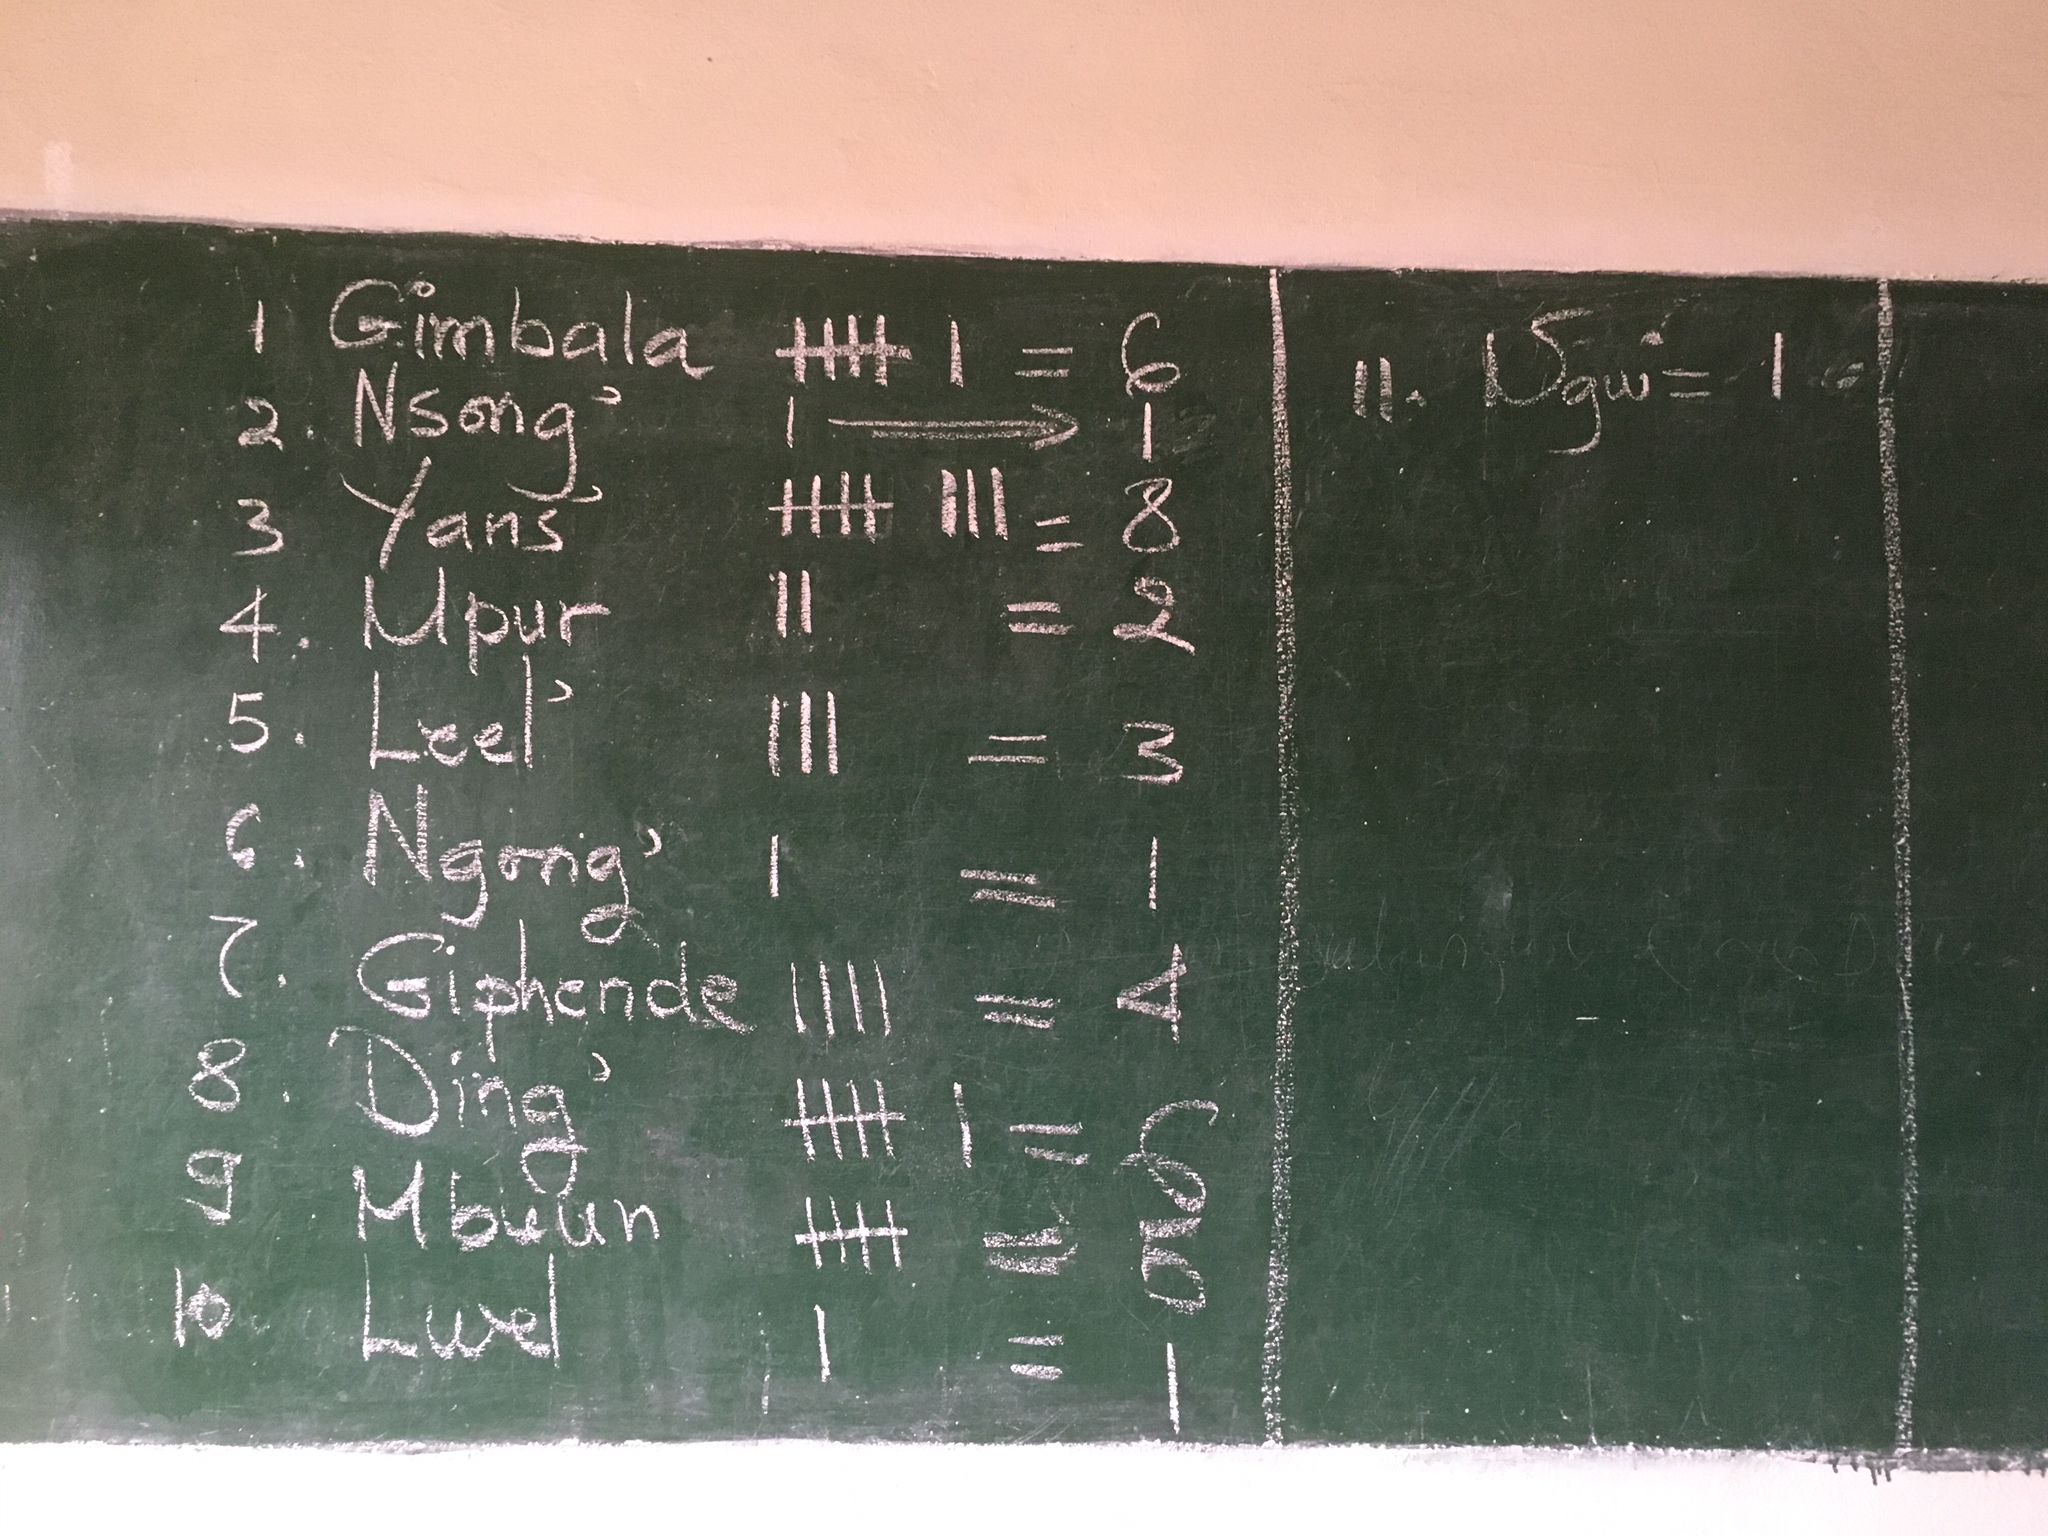 1 Gimbala 𝍸 | = 6
2. Nsong' | → 1
3 Yans' 𝍸 ||| = 8
4. Mpur || = 2
5. Leel' ||| = 3
6. Ngong' | = 1
7. Giphende |||| = 4
8. Ding' 𝍸 | = 6
9 Mbuun 𝍸 = 5
10 Lwel | = 1
11. Ngwi = 1